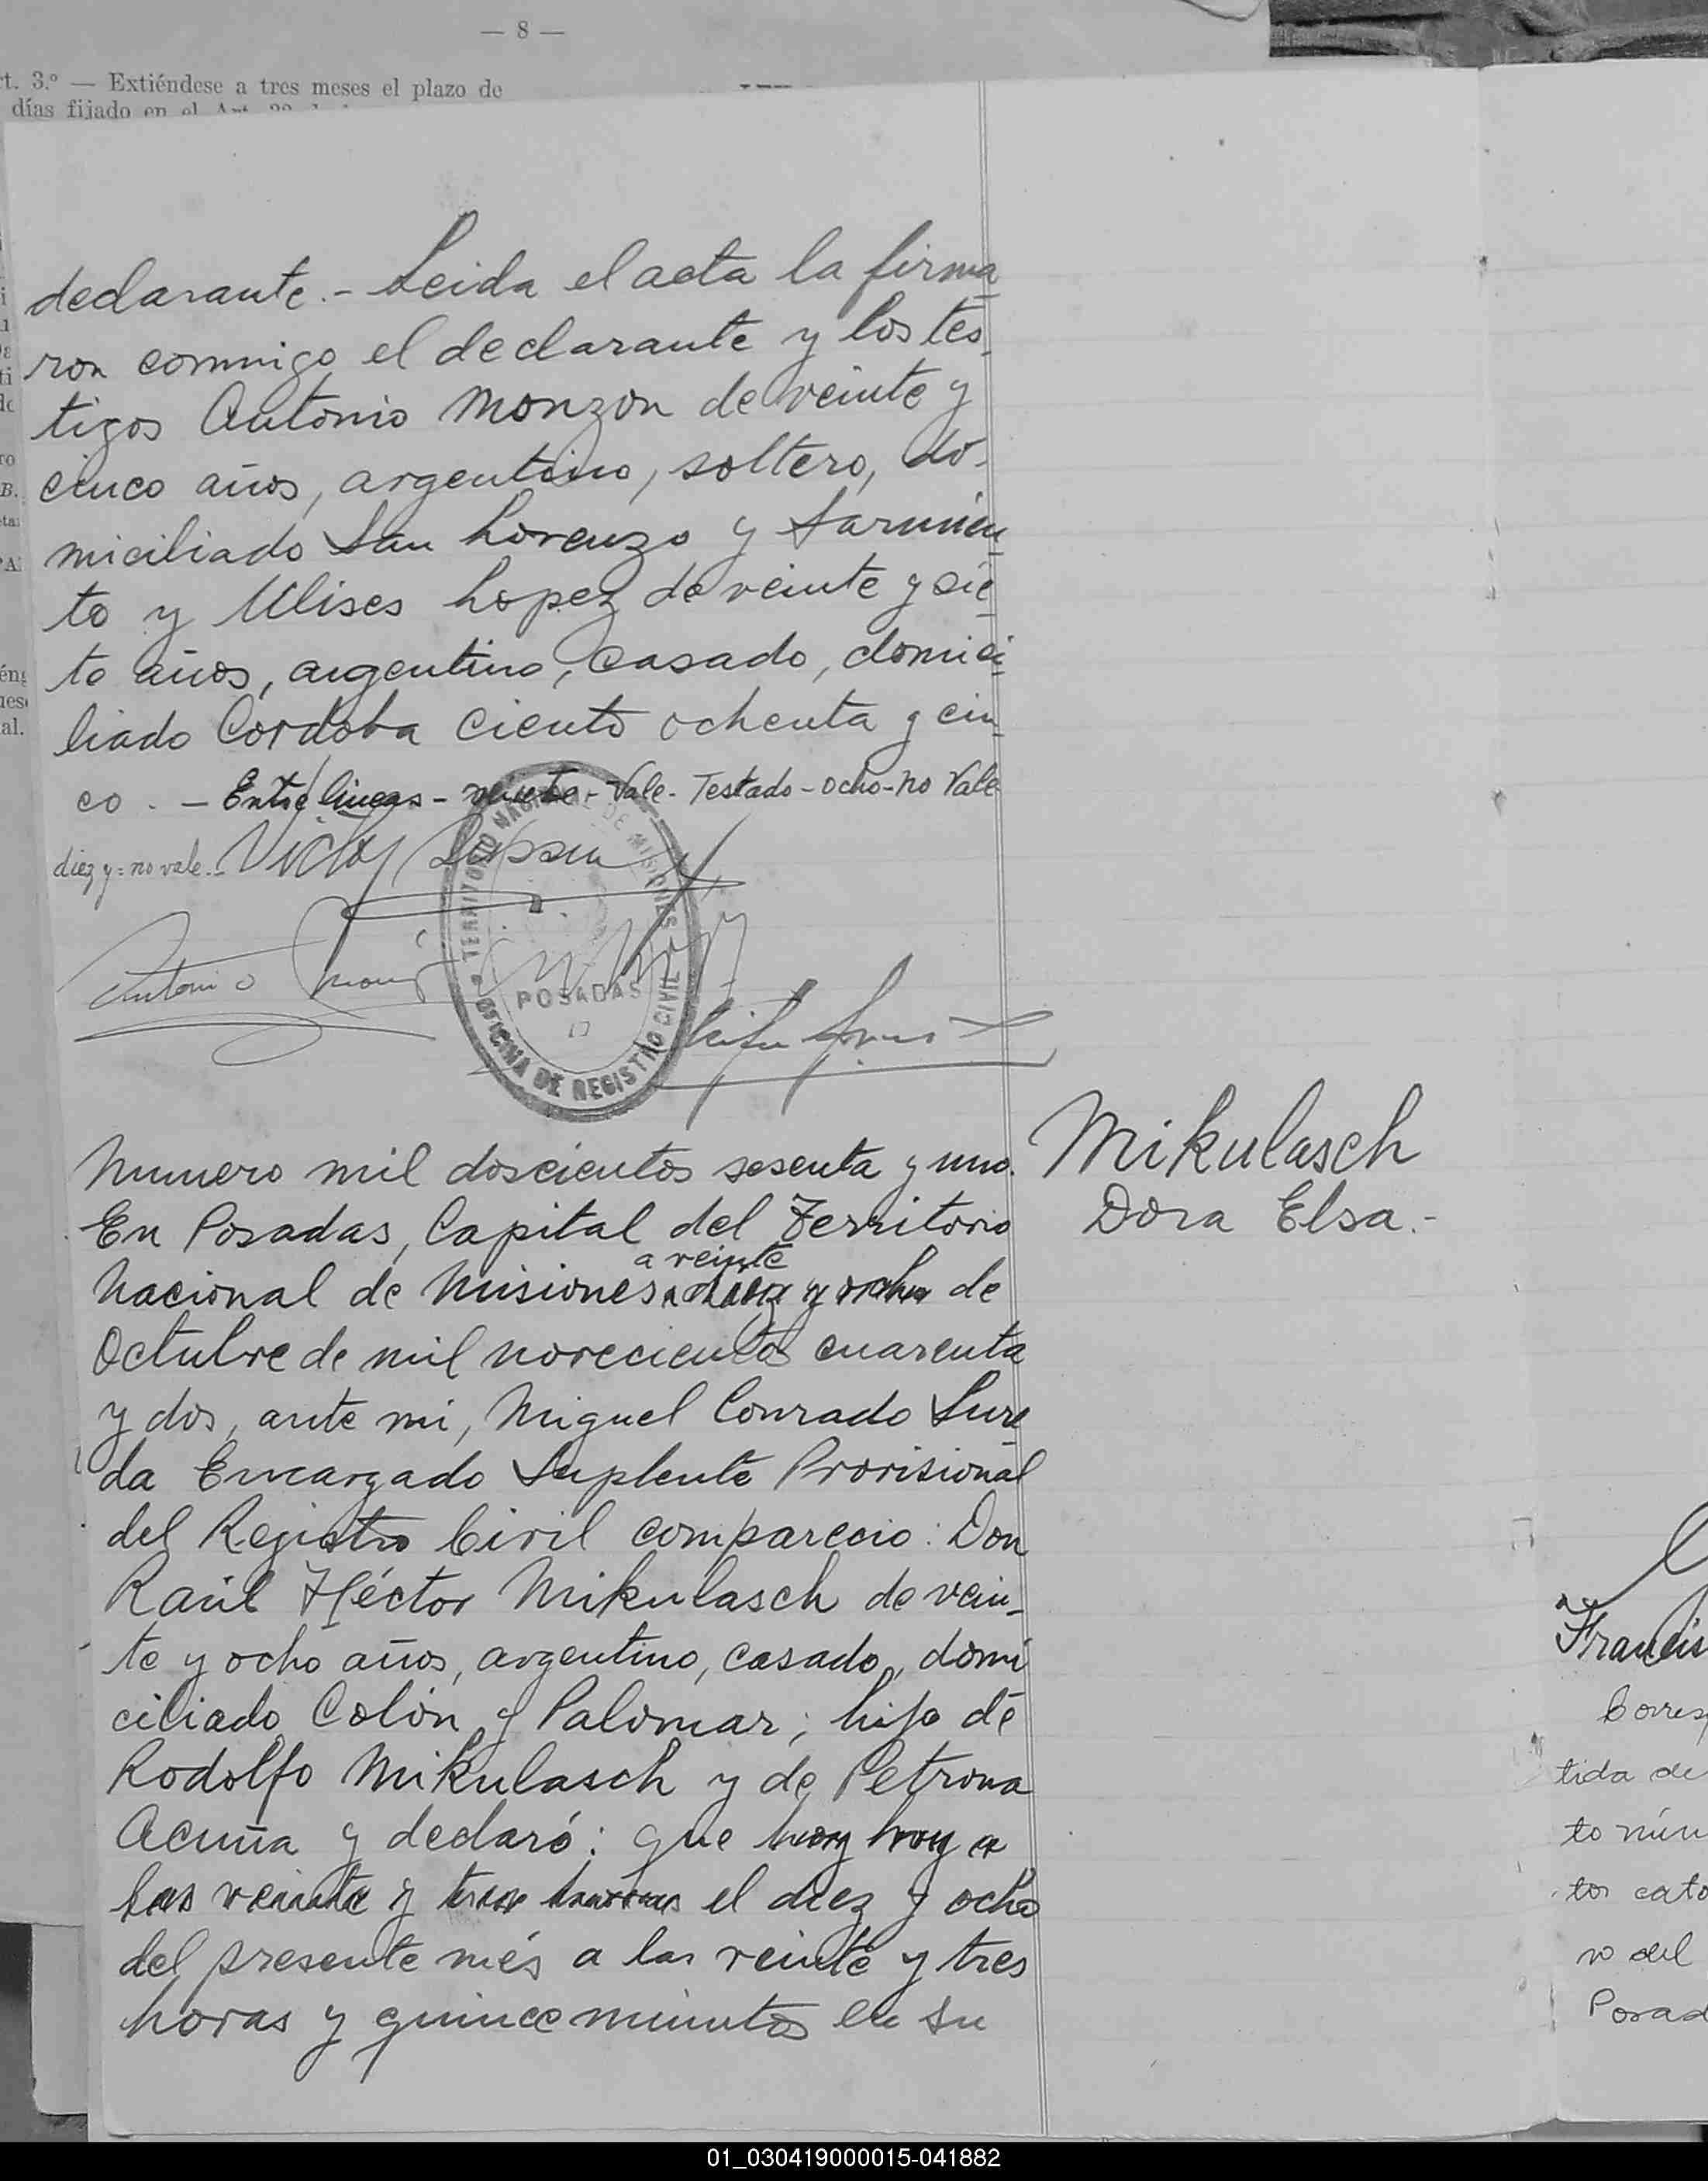 — 8 —
rt. 3.º — Extiéndese a tres meses el plazo de
días fijado en el Art.
declarante.- Leida el acta la firma
ron conmigo el declarante y los tes
tigos Antonio Monzon de veinte y
cinco años, argentino, soltero, do-
miciliado San Lorenzo y Sarmien
to y Ulises Lopez de veinte y sie
te años, argentino, casado, domici
liado Cordoba ciento ochenta y cin
co. — Entre lineas - veinte - Vale - Testado - ocho - no Vale
diez y = no vale.-
Antonio
TERRITORIO NACIONAL DE MISIONES
POSADAS
OFICINA DE REGISTRO CIVIL
Numero mil doscientos sesenta y uno.
Mikulasch
Dora Elsa.-
En Posadas, Capital del Territorio
a veinte
Nacional de Misiones a diez y ocho de
Octubre de mil novecientos cuarenta
y dos, ante mi, Miguel Conrado Sure
da Encargado Suplente Provisional
del Registro Civil comparecio: Don
Raúl Héctor Mikulasch de vein-
te y ocho años, argentino, casado, domi
ciliado Colón y Palomar; hijo de
Rodolfo Mikulasch y de Petrona
Acuña y declaró: que hoy hoy a
las veinte y tres horas el diez y ocho
del presente més a las veinte y tres
horas y quince minutos en su
Francis
Corres
tida de
to núm
tos cato
no del
Posad
01_030419000015-041882